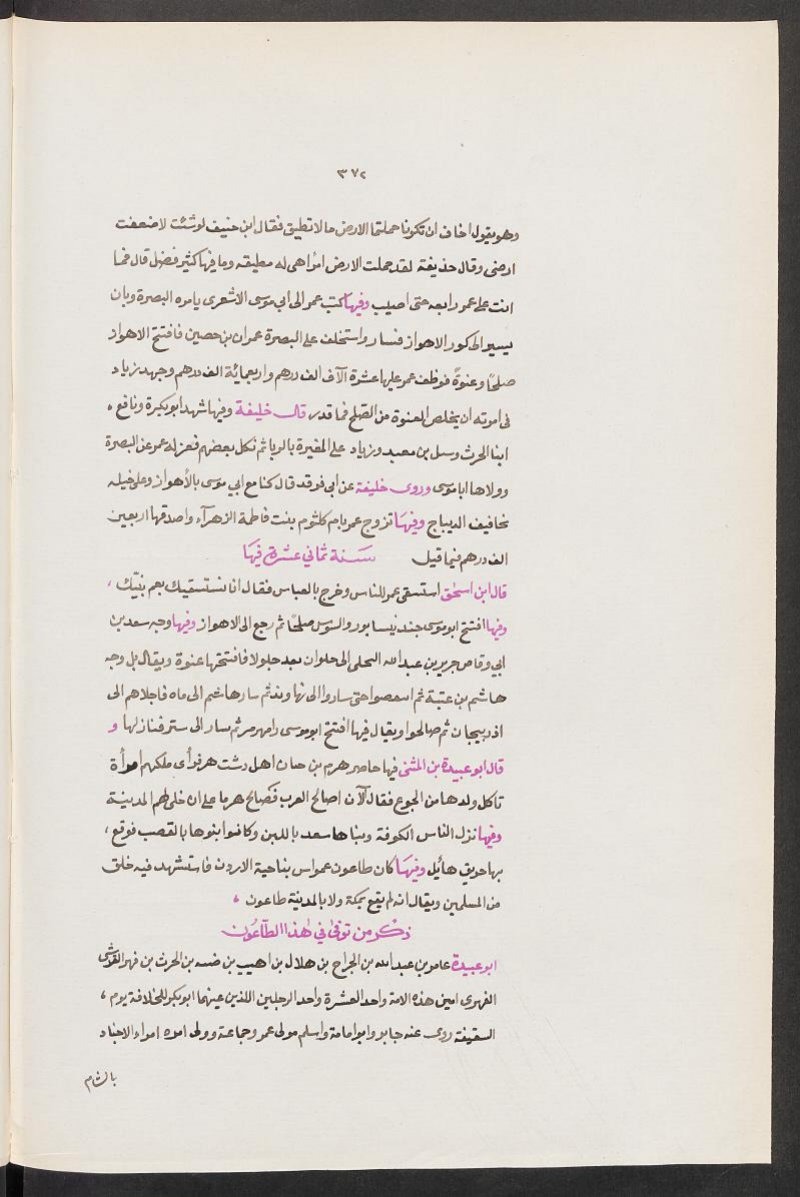 ٣٧٢
وهو يقول اخاف ان تكونا حملتما الارض ما لا تطيق فقال ابن حنيف لو شئت لاضعفت
ارضى وقال حذيفة لقد حملت الارض امرا هى له مطيقه وما فيها كثير فضل قال فما
اتت عليه عمر رابعه حتى اصيب وفيها كتب عمر الى ابي موسى الاشعرى يامره البصرة وبان
يسير الى كور الاهواز فسار واستخلف على البصرة عمران بن حصين فافتتح الاهواز
صلحًا وعنوةً فوظف عمر عليها عشرة آلاف الف درهم واربعمائة الف درهم وجهد زياد
فى امرته ان يخلص العنوة من الصلح فما قدر قال خليفة وفيها شهد ابو بكرة ونافع ،
ابنا الحرث وسبل بن معبد وزياد على المغيرة بالزنا ثم نكل بعضهم فعزله عمر عن البصرة
وولاها ابا موسى وروى خليفة عن ابى فرقد قال كنا مع ابي موسى بالأهواز وعلى خيله
تخافيف الديباج وفيهَا تزوج عمر بام كلثوم بنت فاطمة الزهرآء واصدقها اربعين
الف درهم فيما قيل سَنة ثماني عشرة فيها
قال ابن اسحٰق استسقى عمر للناس وخرج بالعباس فقال انا نستسقيك بعم نبيّك ،
وفيها افتتح ابو موسى جند نيسابور والسوس صلحًا ثم رجع الى الاهواز وفيها وجه سعد بن
ابي وقاص جرير بن عبد الله البجلى الى حلوان بعد جلولا فافتتحها عنوة ويقال بل وجه
هاشم بن عتبة ثم انتقضوا حتى ساروا الى نهاوند ثم سار هاشم الى ماه فاجلاهم الى
اذربيجان ثم صالحوا ويقال فيها افتتح ابو موسى رامهرمز ثم سار الى ستر فنازلها و
قال ابو عبيدة بن المثنى فيها حاصر هرم بن حيان اهل دشت هر فرأى ملكهم امرأة
تاكل ولدها من الجوع فقال الآن اصالح العرب فصالح هرما على ان خلى لهم المدينة
وفيها نزل الناس الكوفة وبناها سعد باللبن وكانوا بنوها بالقصب فوقع ،
بها حريق هائل وفيهَا كان طاعون عمواس بناحية الاردن فاستشهد فيه خلق
من المسلمين ويقال انه لم يقع بمكة ولا بالمدينة طاعون ،
ذكر من توفى في هٰذا الطاعُون
ابو عبيدة عامر بن عبد الله بن الجراح بن هلال بن اهيب بن ضبه بن الحرث بن فهر القرشى
الفهرى امين هذه الامة واحد العشرة واحد الرجلين اللذين عينهما ابو بكر للخلافة يوم ،
السقيفة روى عنه جابر وابو امامة واسلم مولى عمر وجماعة وولى امره امراء الاجناد
بالشام